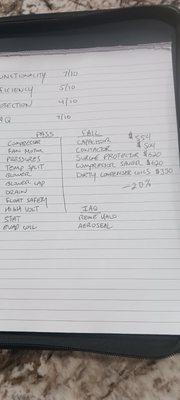 UNCTIONALITY 7/10
FICIENCY 5/10
OTECTION 4/10
AQ 7/10
PASS FAIL
COMPRESSOR CAPACITOR $554
FAN MOTOR CONTACTOR $504
PRESSURES SURGE PROTECTOR $620
TEMP SPLIT COMPRESSOR SAVER $620
BLOWER DIRTY CONDENSER COILS $350
BLOWER CAP -20%
DRAIN
FLOAT SAFETY
HIGH VOLT IAQ
STAT REME HALO
EVAP COIL AEROSEAL